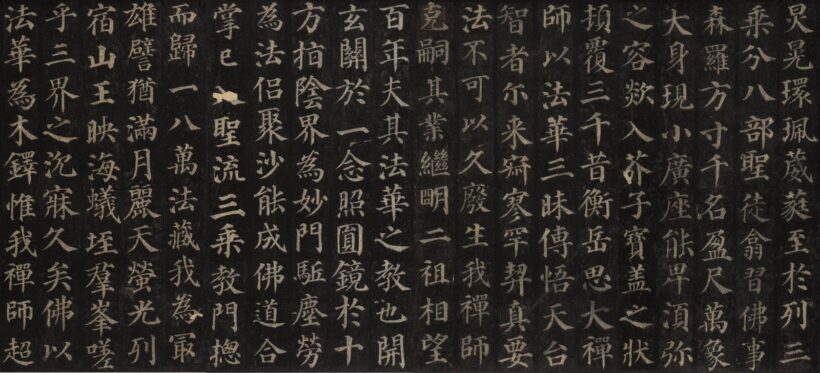 炅晃環珮葳蕤至於列三
乘分八部聖徒翕習佛事
森羅方寸千名盈尺萬象
大身現小廣座能卑湏弥
之容欻入芥子寶盖之狀
頓覆三千昔衡岳思大禪
師以法華三昧傳悟天台
智者尔来寂寥罕契真要
法不可以久廢生我禪師
克嗣其業繼明二祖相望
百年夫其法華之教也開
玄關於一念照圓鏡於十
方指陰界為妙門駈塵勞
為法侶聚沙能成佛道合
掌已入聖流三乘教門揔
而歸一八萬法藏我為冣
雄譬猶滿月麗天螢光列
宿山王映海蟻垤羣峯嗟
乎三界之沉寐久矣佛以
法華為木鐸惟我禪師超